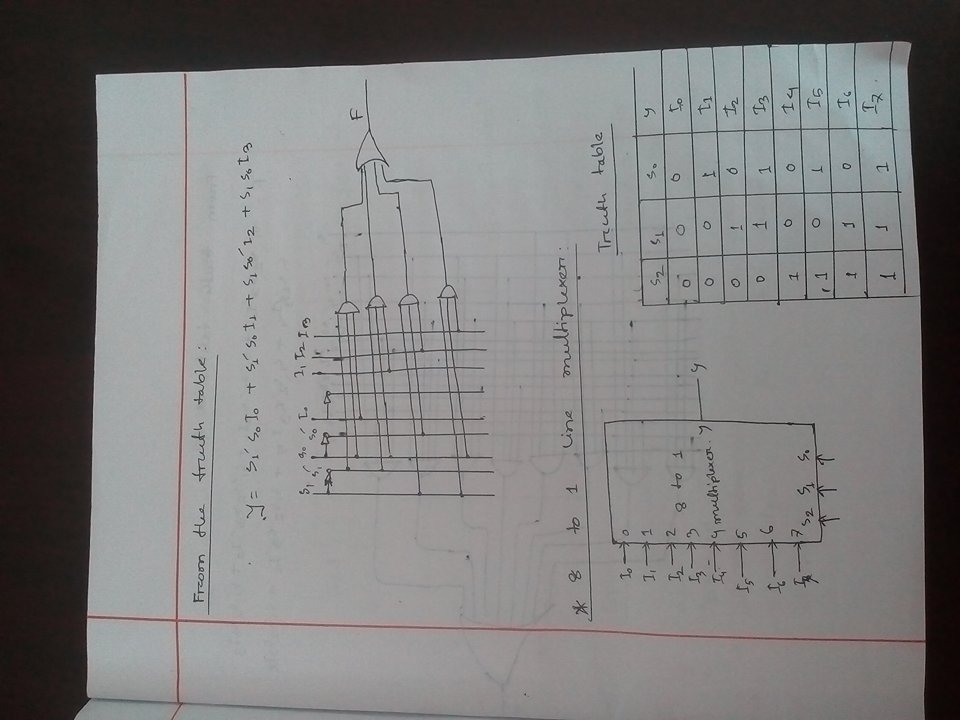 From the truth table:
y = S₁′ S₀ I₀ + S₁′ S₀ I₁ + S₁ S₀′ I₂ + S₁ S₀ I₃
S₁ S₁′ S₀ S₀′ I₀ I₁ I₂ I₃
F
* 8 to 1 line multiplexer:
Truth table
I₀ 0
I₁ 1
I₂ 2
I₃ 3
I₄ 4
I₅ 5
I₆ 6
I₇ 7
8 to 1
multiplexer. y
y
S₂ S₁ S₀
S₂ S₁ S₀ y
0 0 0 I₀
0 0 1 I₁
0 1 0 I₂
0 1 1 I₃
1 0 0 I₄
1 0 1 I₅
1 1 0 I₆
1 1 1 I₇